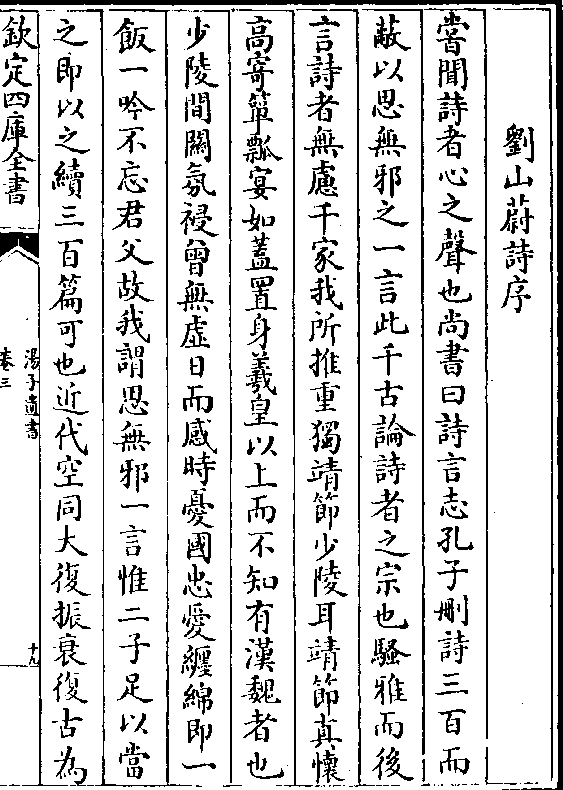 劉山蔚詩序
嘗聞詩者心之聲也尚書曰詩言志孔子刪詩三百而
蔽以思無邪之一言此千古論詩者之宗也騷雅而後
言詩者無慮千家我所推重獨靖節少陵耳靖節真懷
高寄簞瓢宴如蓋置身羲皇以上而不知有漢魏者也
少陵間關氛祲曾無虛日而感時憂國忠愛纏綿即一
飯一吟不忘君父故我謂思無邪一言惟二子足以當
之即以之續三百篇可也近代空同大復振衰復古為
欽定四庫全書
湯子遺書
卷三
十九